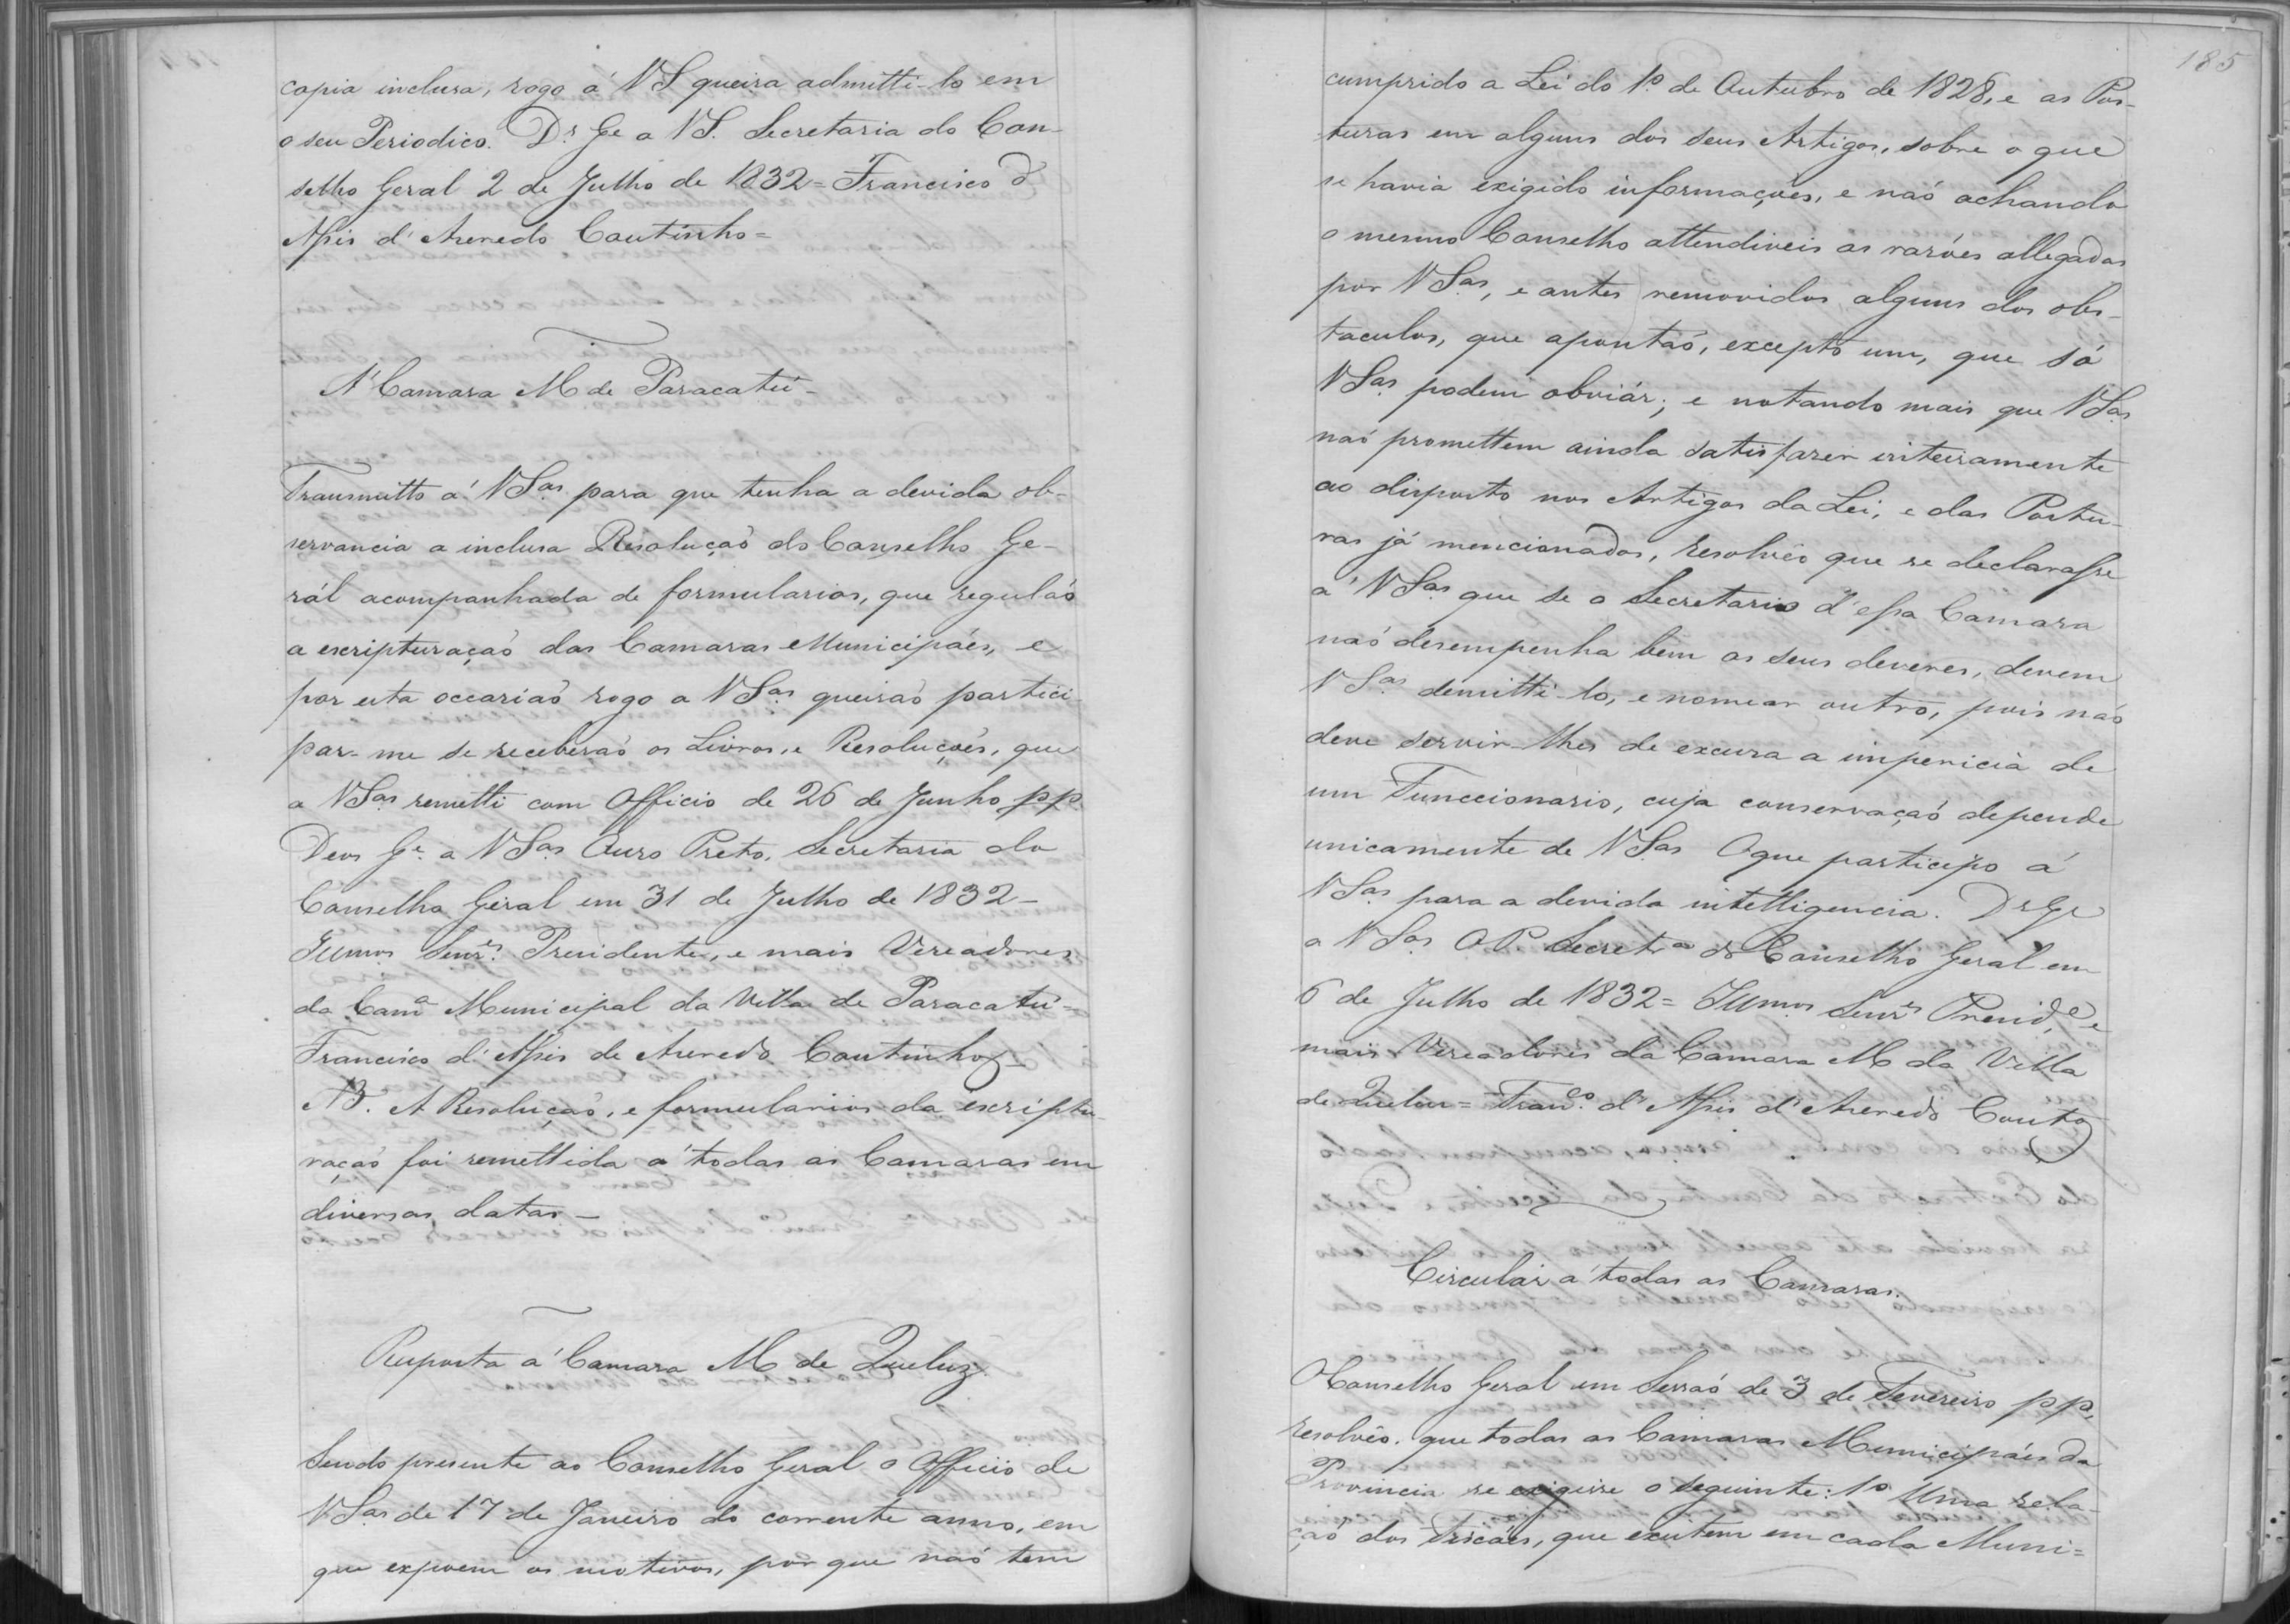 copia inclusa, rogo á VS queira admitti-lo em
o seu Periodico. Ds. Ge a VS. Secretaria do Con-
selho Geral 2 de Julho de 1832 = Francisco d'
Assis d'Azeredo Coutinho =
A' Camara M de Paracatú -
Transmitto á VSas. para que tenha a devida ob-
servancia a inclusa Resoluçaõ do Conselho Ge-
rál acompanhada de formularios, que regulaõ
a escripturaçaõ das Camaras Municipáes, e
por esta occasiaõ rogo a VSas. queiraõ partici-
par-me se receberaõ os Livros, e Resoluções, que
a VSas. remetti com Officio de 26 de Junho pp.
Deos Ge. a VSas. Ouro Preto. Secretaria do
Conselho Geral em 31 de Julho de 1832 -
Illmos. Senrs. Presidente, e mais Vereadores
da Cama. Municipal da Villa de Paracatú =
Francisco d'Assis de Azeredo Coutinho -
NB. A Resoluçaõ, e formularios da escriptu-
raçaõ foi remettida á todas as Camaras em
diversas datas -
Resposta á Camara M de Queluz.
Sendo presente ao Conselho Geral o Officio de
VSas. de 17 de Janeiro do corrente anno, em
que expoem os motivos, por que naõ tem
185
cumprido a Lei do 1º. de Outubro de 1828, e as Pos-
turas em alguns dos seus Artigos, sobre o que
se havia exigido informações, e naõ achando
o mesmo Conselho attendiveis as razões allegadas
por VSas., e antes removidos alguns dos obs-
taculos, que apontaõ, excepto um, que só
VSas. podem obviár; e notando mais que VSas.
naõ promettem ainda satisfazer inteiramente
ao disposto nos Artigos da Lei, e das Postu-
ras já mencionadas, resolvêo que se declarasse
á VSas. que se o Secretario d'essa Camara
naõ desempenha bem os seus deveres, devem
VSas. demitti-lo, e nomear outro, pois naõ
deve servir-lhes de excusa a impericia de
um Funccionario, cuja conservaçaõ depende
unicamente de VSas. O que participo á
VSas. para a devida intelligencia. Ds Ge
a VSas. OP. Secreta. do Conselho Geral em
6 de Julho de 1832 = Illmos. Senrs. Preside. e
mais Vereadores da Camara M da Villa
de Queluz = Franco. d'Assis d'Azeredo Couto
Circular á todas as Camaras.
O Conselho Geral em Sessaõ de 3 de Fevereiro pp.
resolvêo, que todas as Camaras Municipáes da
Provincia se exigisse o seguinte: 1º Uma rela-
çaõ dos Fiscáes, que existem em cada Muni=